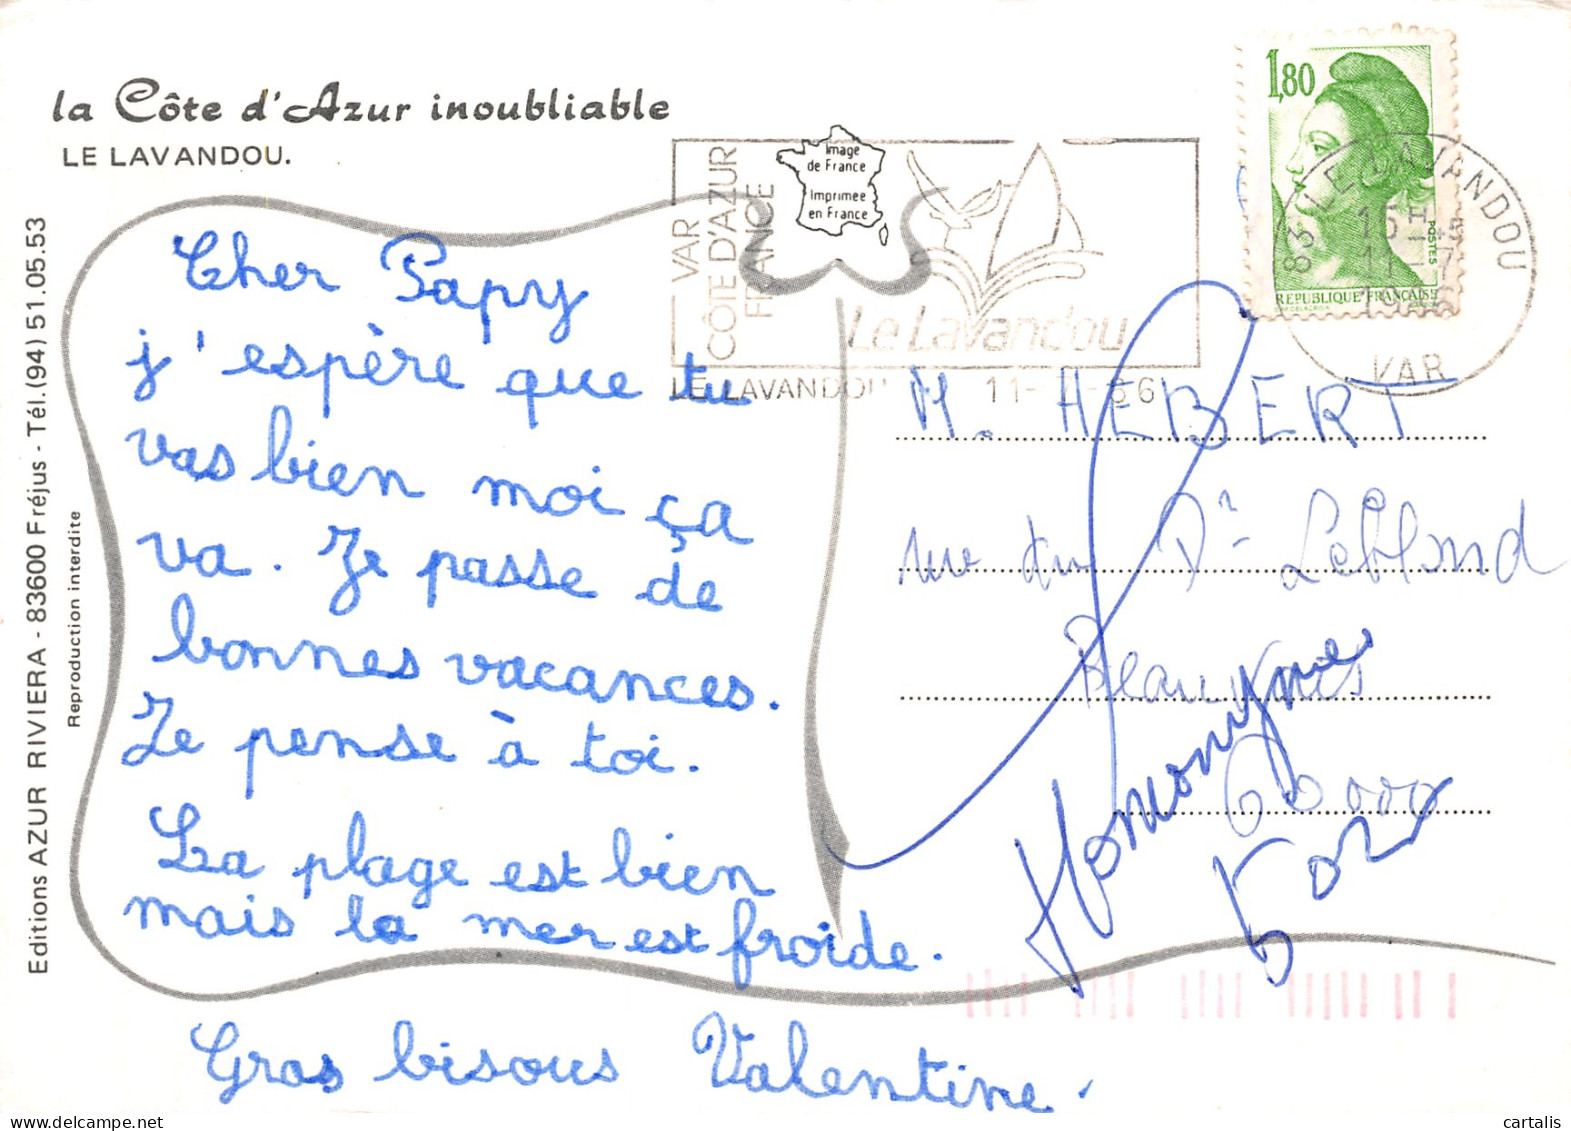 la Côte d'Azur inoubliable
LE LAVANDOU.
Image
de France
Imprimée
en France
VAR
CÔTE D'AZUR
FRANCE
Le Lavandou
LE LAVANDOU 11-7-86
1,80
POSTES
REPUBLIQUE FRANÇAISE
83 LE LAVANDOU
15H
11-7
1986
VAR
Cher Papy
j'espère que tu
vas bien moi ça
va. Je passe de
bonnes vacances.
Je pense à toi.
La plage est bien
mais la mer est froide.
Gros bisous Valentine.
M. HEBERT
rue du Dr Leblond
Beauvais
60000
Homonymes
Editions AZUR RIVIERA - 83600 Fréjus - Tél.(94) 51.05.53
Reproduction interdite
cartalis